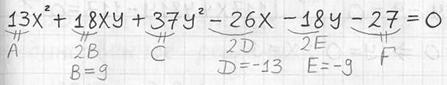 13x² + 18xy + 37y² - 26x - 18y - 27 = 0
A 2B C 2D 2E F
B = 9 D = -13 E = -9